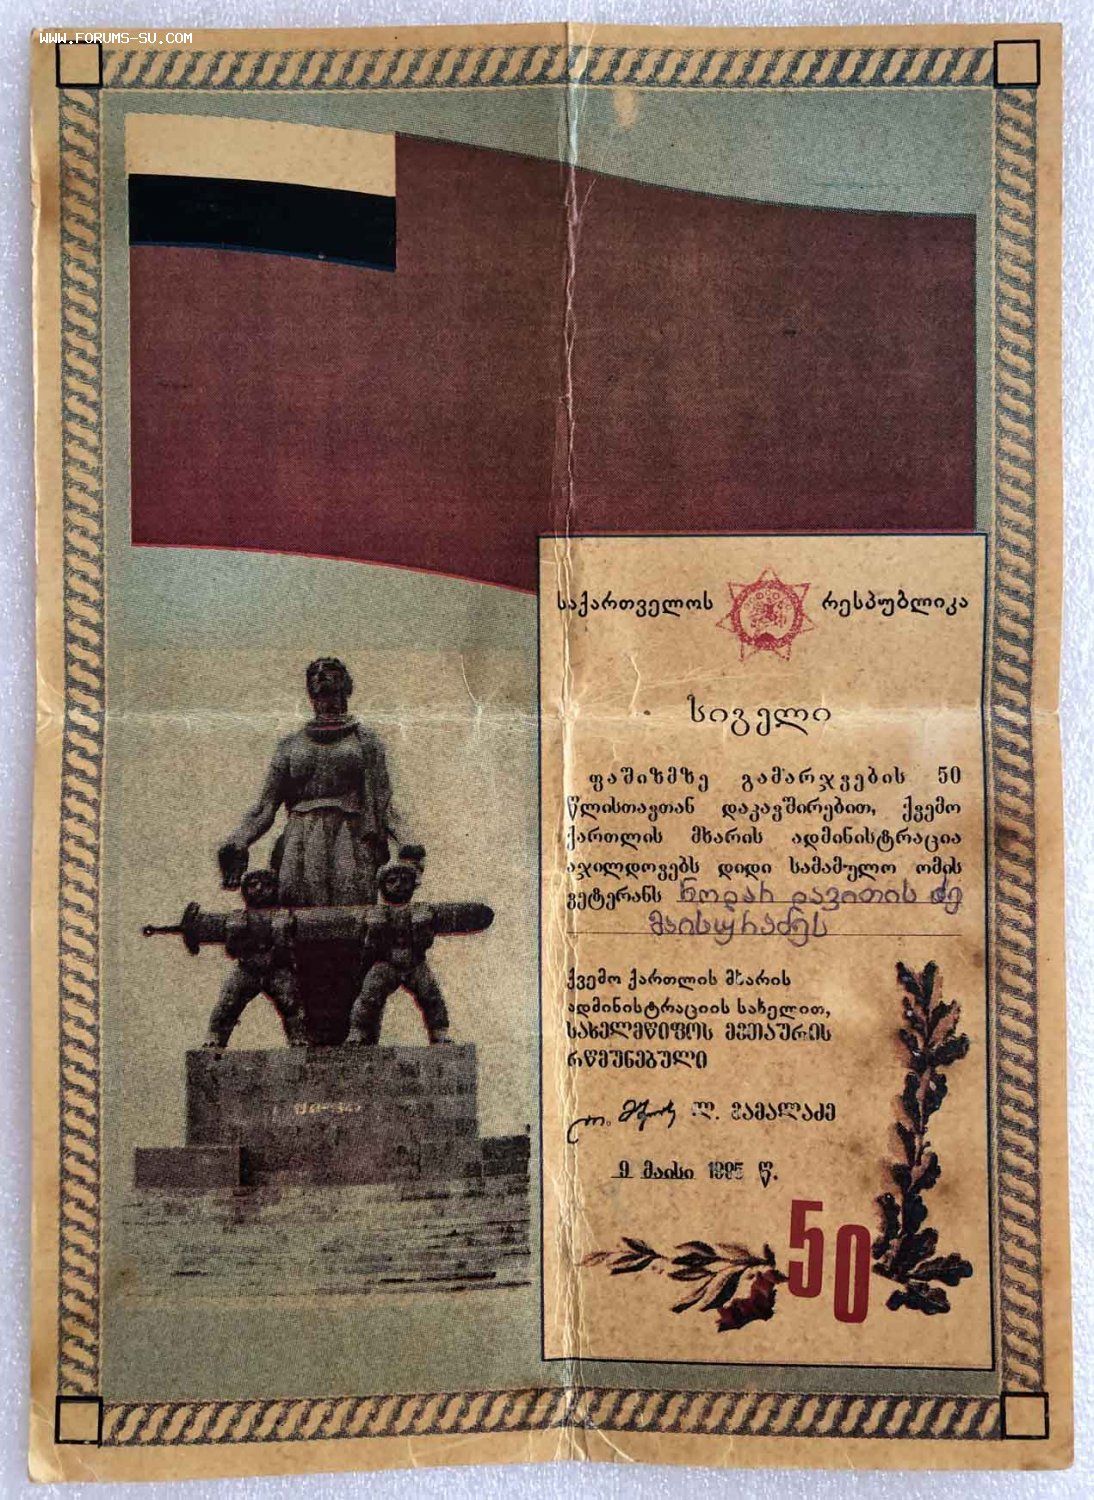 WWW.FORUMS-SU.COM
საქართველოს რესპუბლიკა
სიგელი
ფაშიზმზე გამარჯვების 50
წლისთავთან დაკავშირებით, ქვემო
ქართლის მხარის ადმინისტრაცია
აჯილდოვებს დიდი სამამულო ომის
ვეტერანს ნოდარ დავითის ძე
მაისურაძეს
ქვემო ქართლის მხარის
ადმინისტრაციის სახელით,
სახელმწიფოს მეთაურის
რწმუნებული
ლ. მამალაძე
9 მაისი 1995 წ.
50